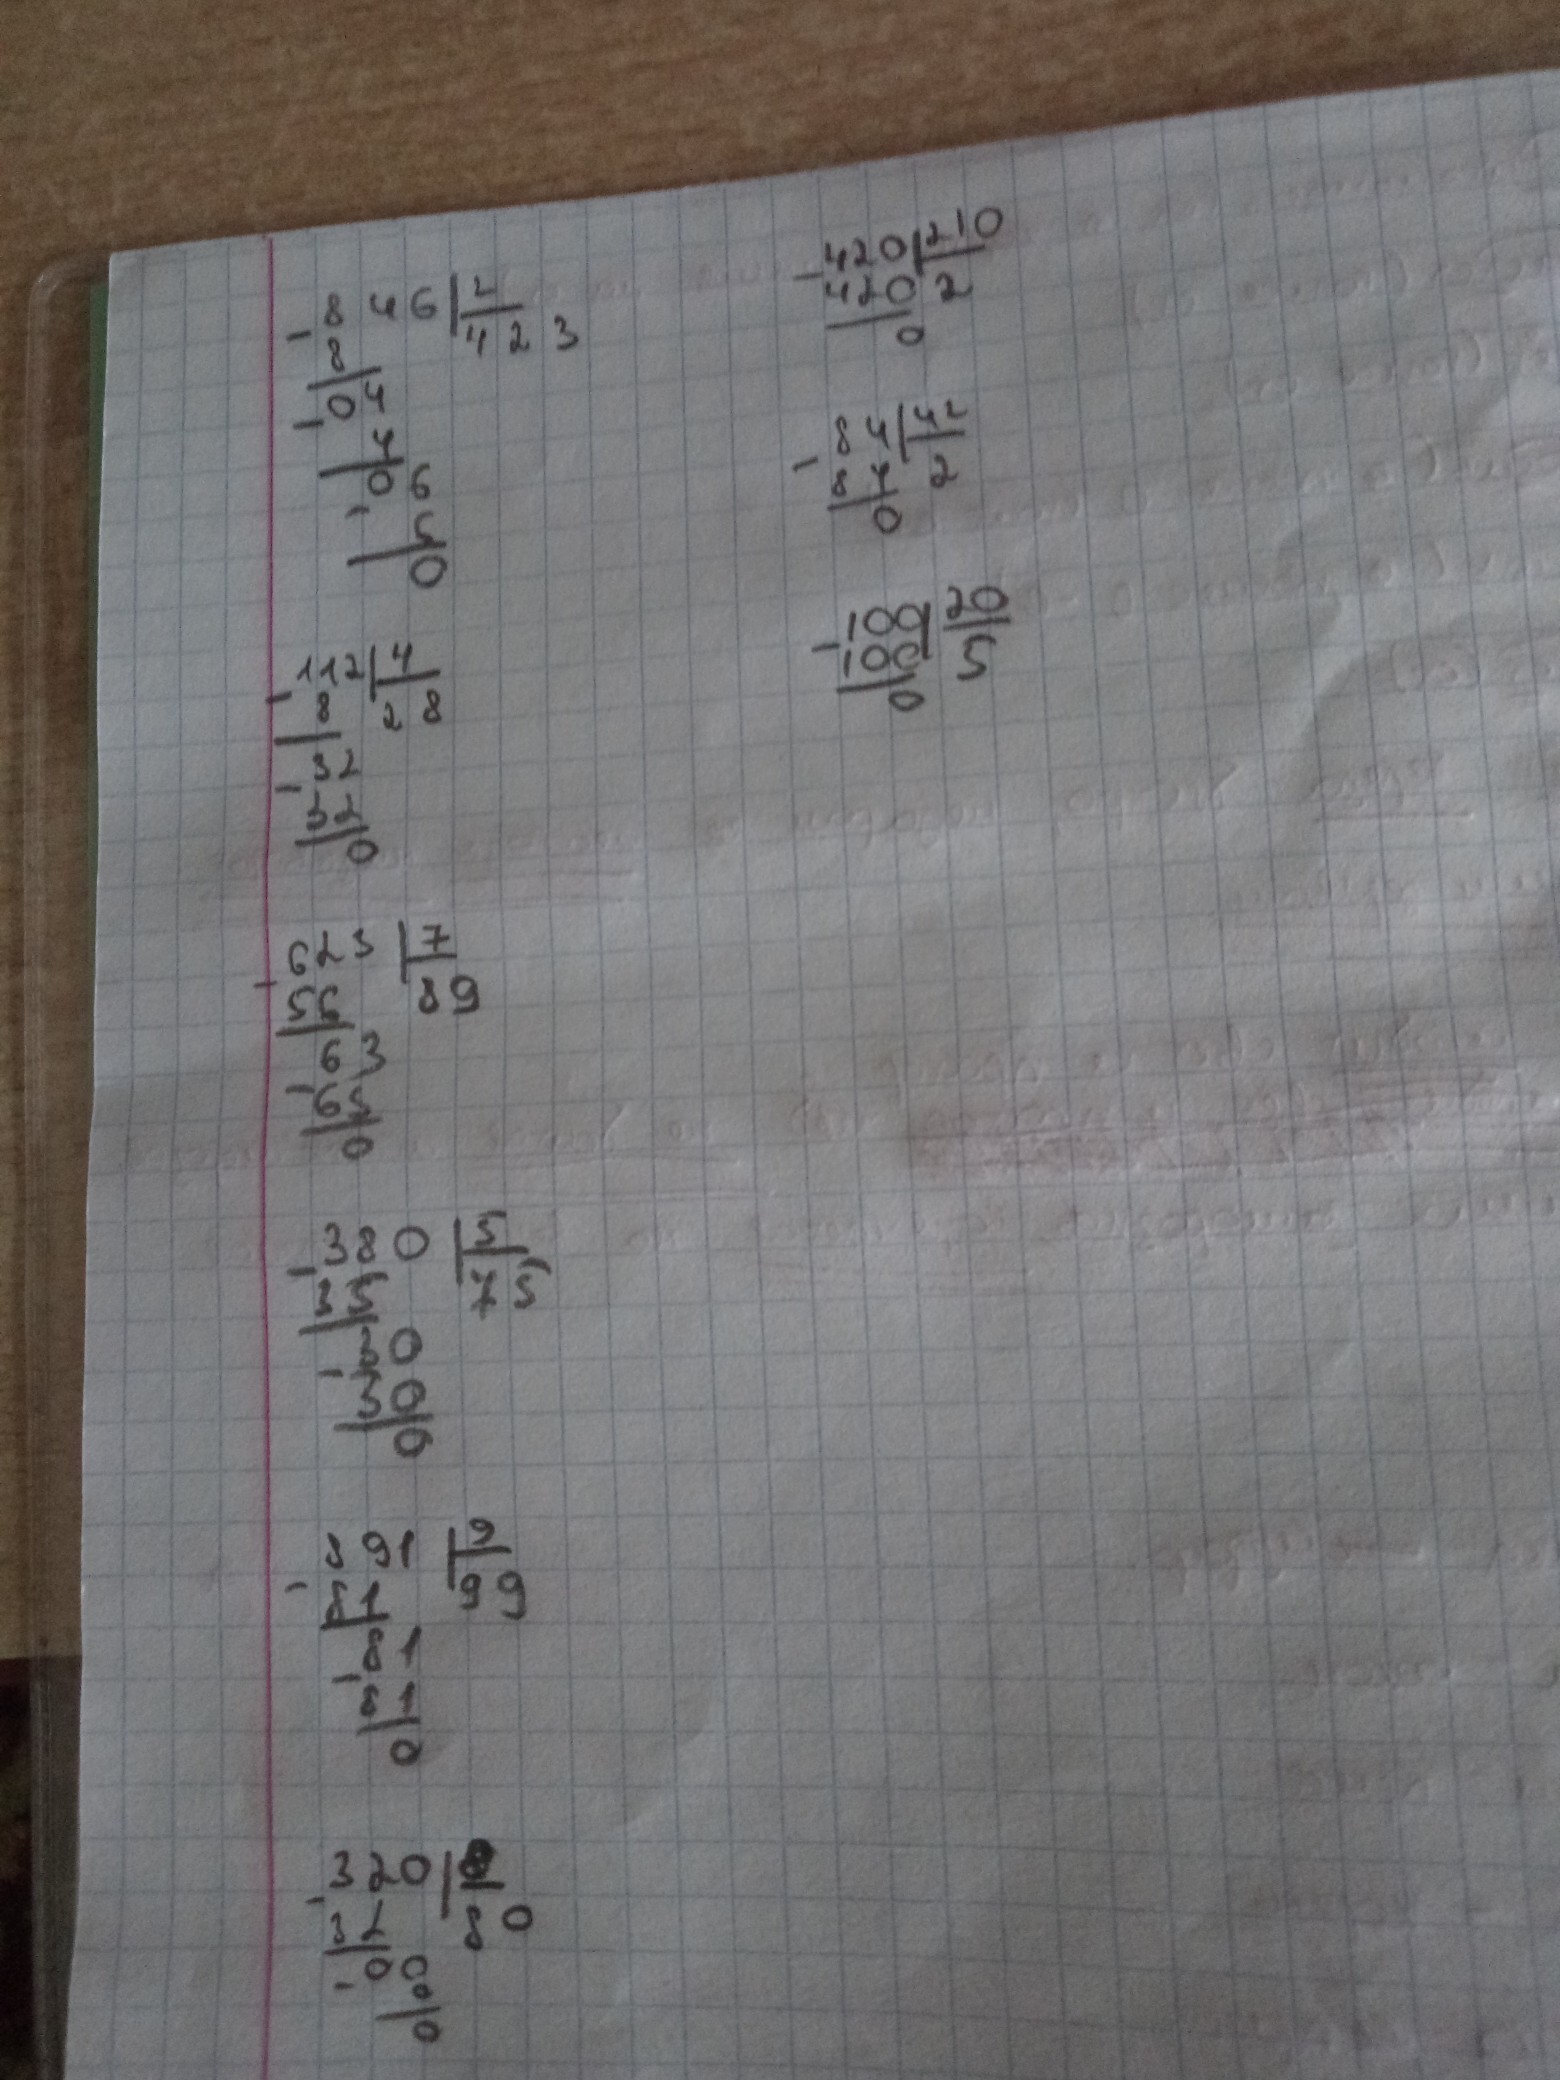 846|2
- 8 423
04
- 4
06
- 6
0
112|4
- 8 28
32
- 32
0
623|7
- 56 89
63
- 63
0
380|5
- 35 75
30
- 30
0
891|9
- 81 99
81
- 81
0
320|
- 32 80
00
- 0
0
420|210
- 420 2
0
84|42
- 84 2
0
100|20
- 100 5
0